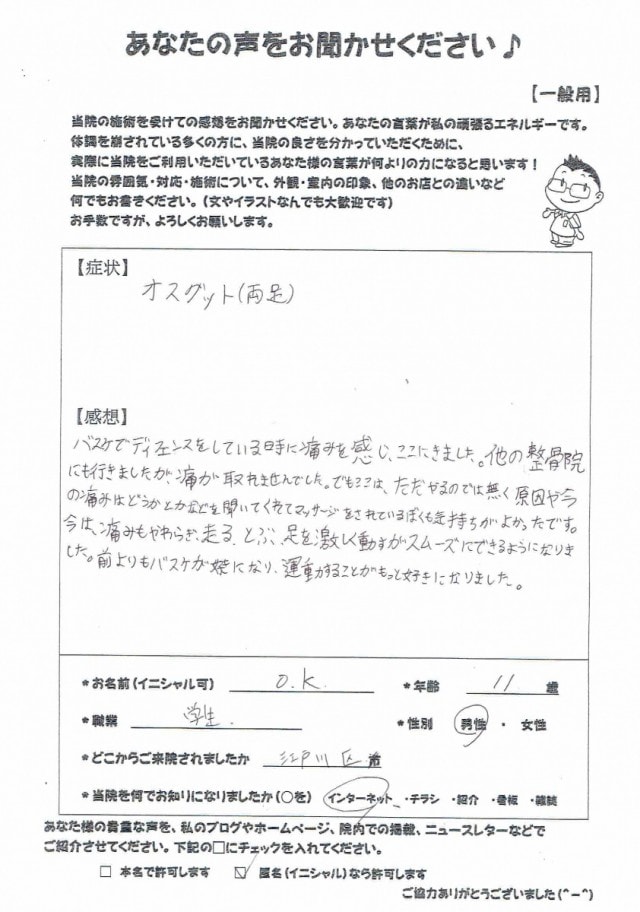 あなたの声をお聞かせください♪
【一般用】
当院の施術を受けての感想をお聞かせください。あなたの言葉が私の頑張るエネルギーです。
体調を崩されている多くの方に、当院の良さを分かっていただくために、
実際に当院をご利用いただいているあなた様の言葉が何よりの力になると思います！
当院の雰囲気・対応・施術について、外観・室内の印象、他のお店との違いなど
何でもお書きください。（文やイラストなんでも大歓迎です）
お手数ですが、よろしくお願いします。
【症状】
オスグット(両足)
【感想】
バスケでディフェンスをしている時に痛みを感じ、ここにきました。他の整骨院
にも行きましたが、痛が取れませんでした。でもここは、ただやるのでは無く原因や今
の痛みはどうかとかなどを聞いてくれてマッサージをされているぼくも気持ちがよかったです。
今は、痛みもやわらぎ、走る、とぶ、足を激しく動すがスムーズにできるようになりま
した。前よりもバスケが楽になり、運動することがもっと好きになりました。
*お名前（イニシャル可） O.K. *年齢 11 歳
*職業 学生. *性別 男性 ・ 女性
*どこからご来院されましたか 江戸川区 市
*当院を何でお知りになりましたか（○を） インターネット ・チラシ ・紹介 ・看板 ・雑誌
あなた様の貴重な声を、私のブログやホームページ、院内での掲載、ニュースレターなどで
ご紹介させてください。下記の□にチェックを入れてください。
□ 本名で許可します ☑ 匿名（イニシャル）なら許可します
ご協力ありがとうございました（^－^）